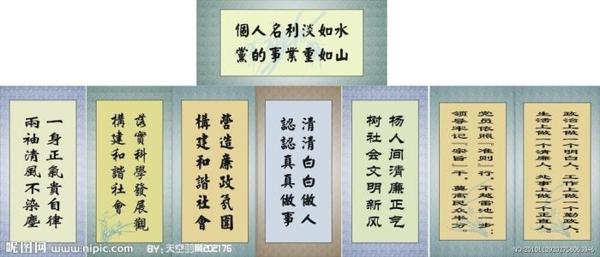 個人名利淡如水
黨的事業重如山
一身正氣貴自律
兩袖清風不染塵
落實科學發展觀
構建和諧社會
營造廉政氛圍
構建和諧社會
清清白白做人
認認真真做事
杨人间清廉正气
树社会文明新风
党员依照“准则”行，不越雷池一步；
领导牢记“宗旨”干，莫离民众半分。
政治上做一个明白人，工作上做一个勤政人；
生活上做一个清廉人，处事上做一个正直人。
昵图网 www.nipic.com
BY: 天空